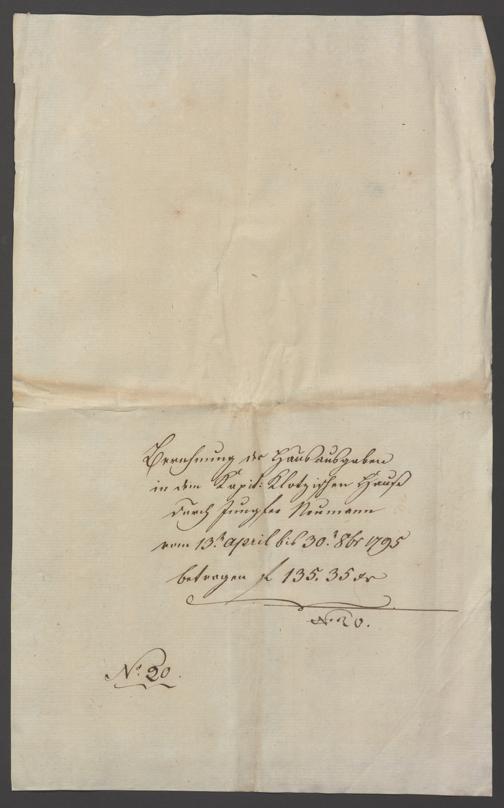 Berechnung der Hausausgaben
in dem Kapit: Klotzischen Hause
durch Jungfer Neumann
vom 13.t april bis 30.t 8br 1795
betragen f 135. 35 xr
No 20.
No 20.